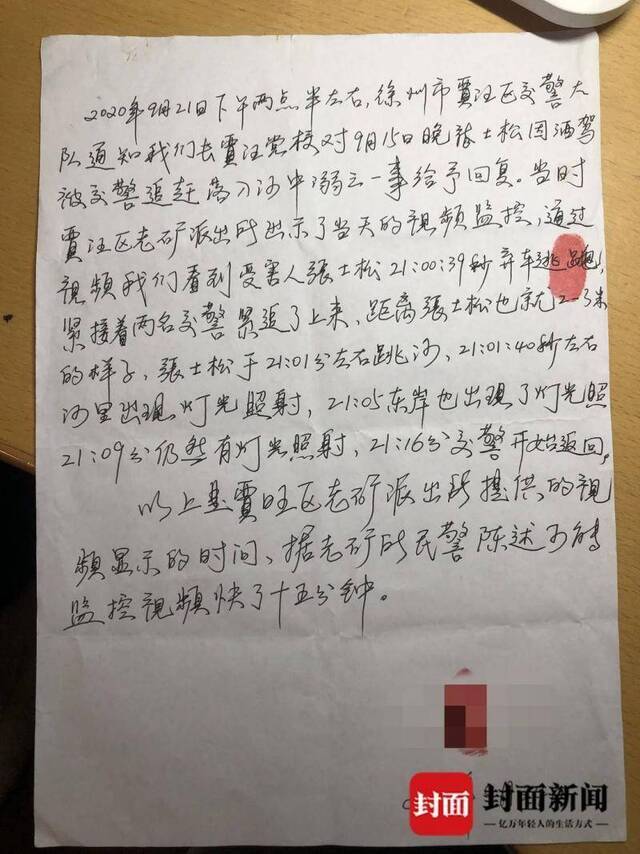 2020年9月21日下午两点半左右,徐州市贾汪区交警大
队通知我们去贾汪党校对9月15日晚张士松因酒驾
被交警追赶落入河中溺亡一事给予回复。当时
贾汪区老矿派出所出示了当天的视频监控,通过
视频我们看到受害人張士松21:00:39秒弃车逃跑,
紧接着两名交警紧追了上来,距离張士松也就2-3米
的样子,張士松于21:01分左右跳河,21:01:40秒左右
河里出现灯光照射,21:05东岸也出现了灯光照
21:09分仍然有灯光照射,21:16分交警开始返回。
以上是賈旺区老矿派出所提供的视
频显示的时间、据老矿所民警陈述
监控视频快了十五分钟。
封面
封面新闻
亿万年轻人的生活方式